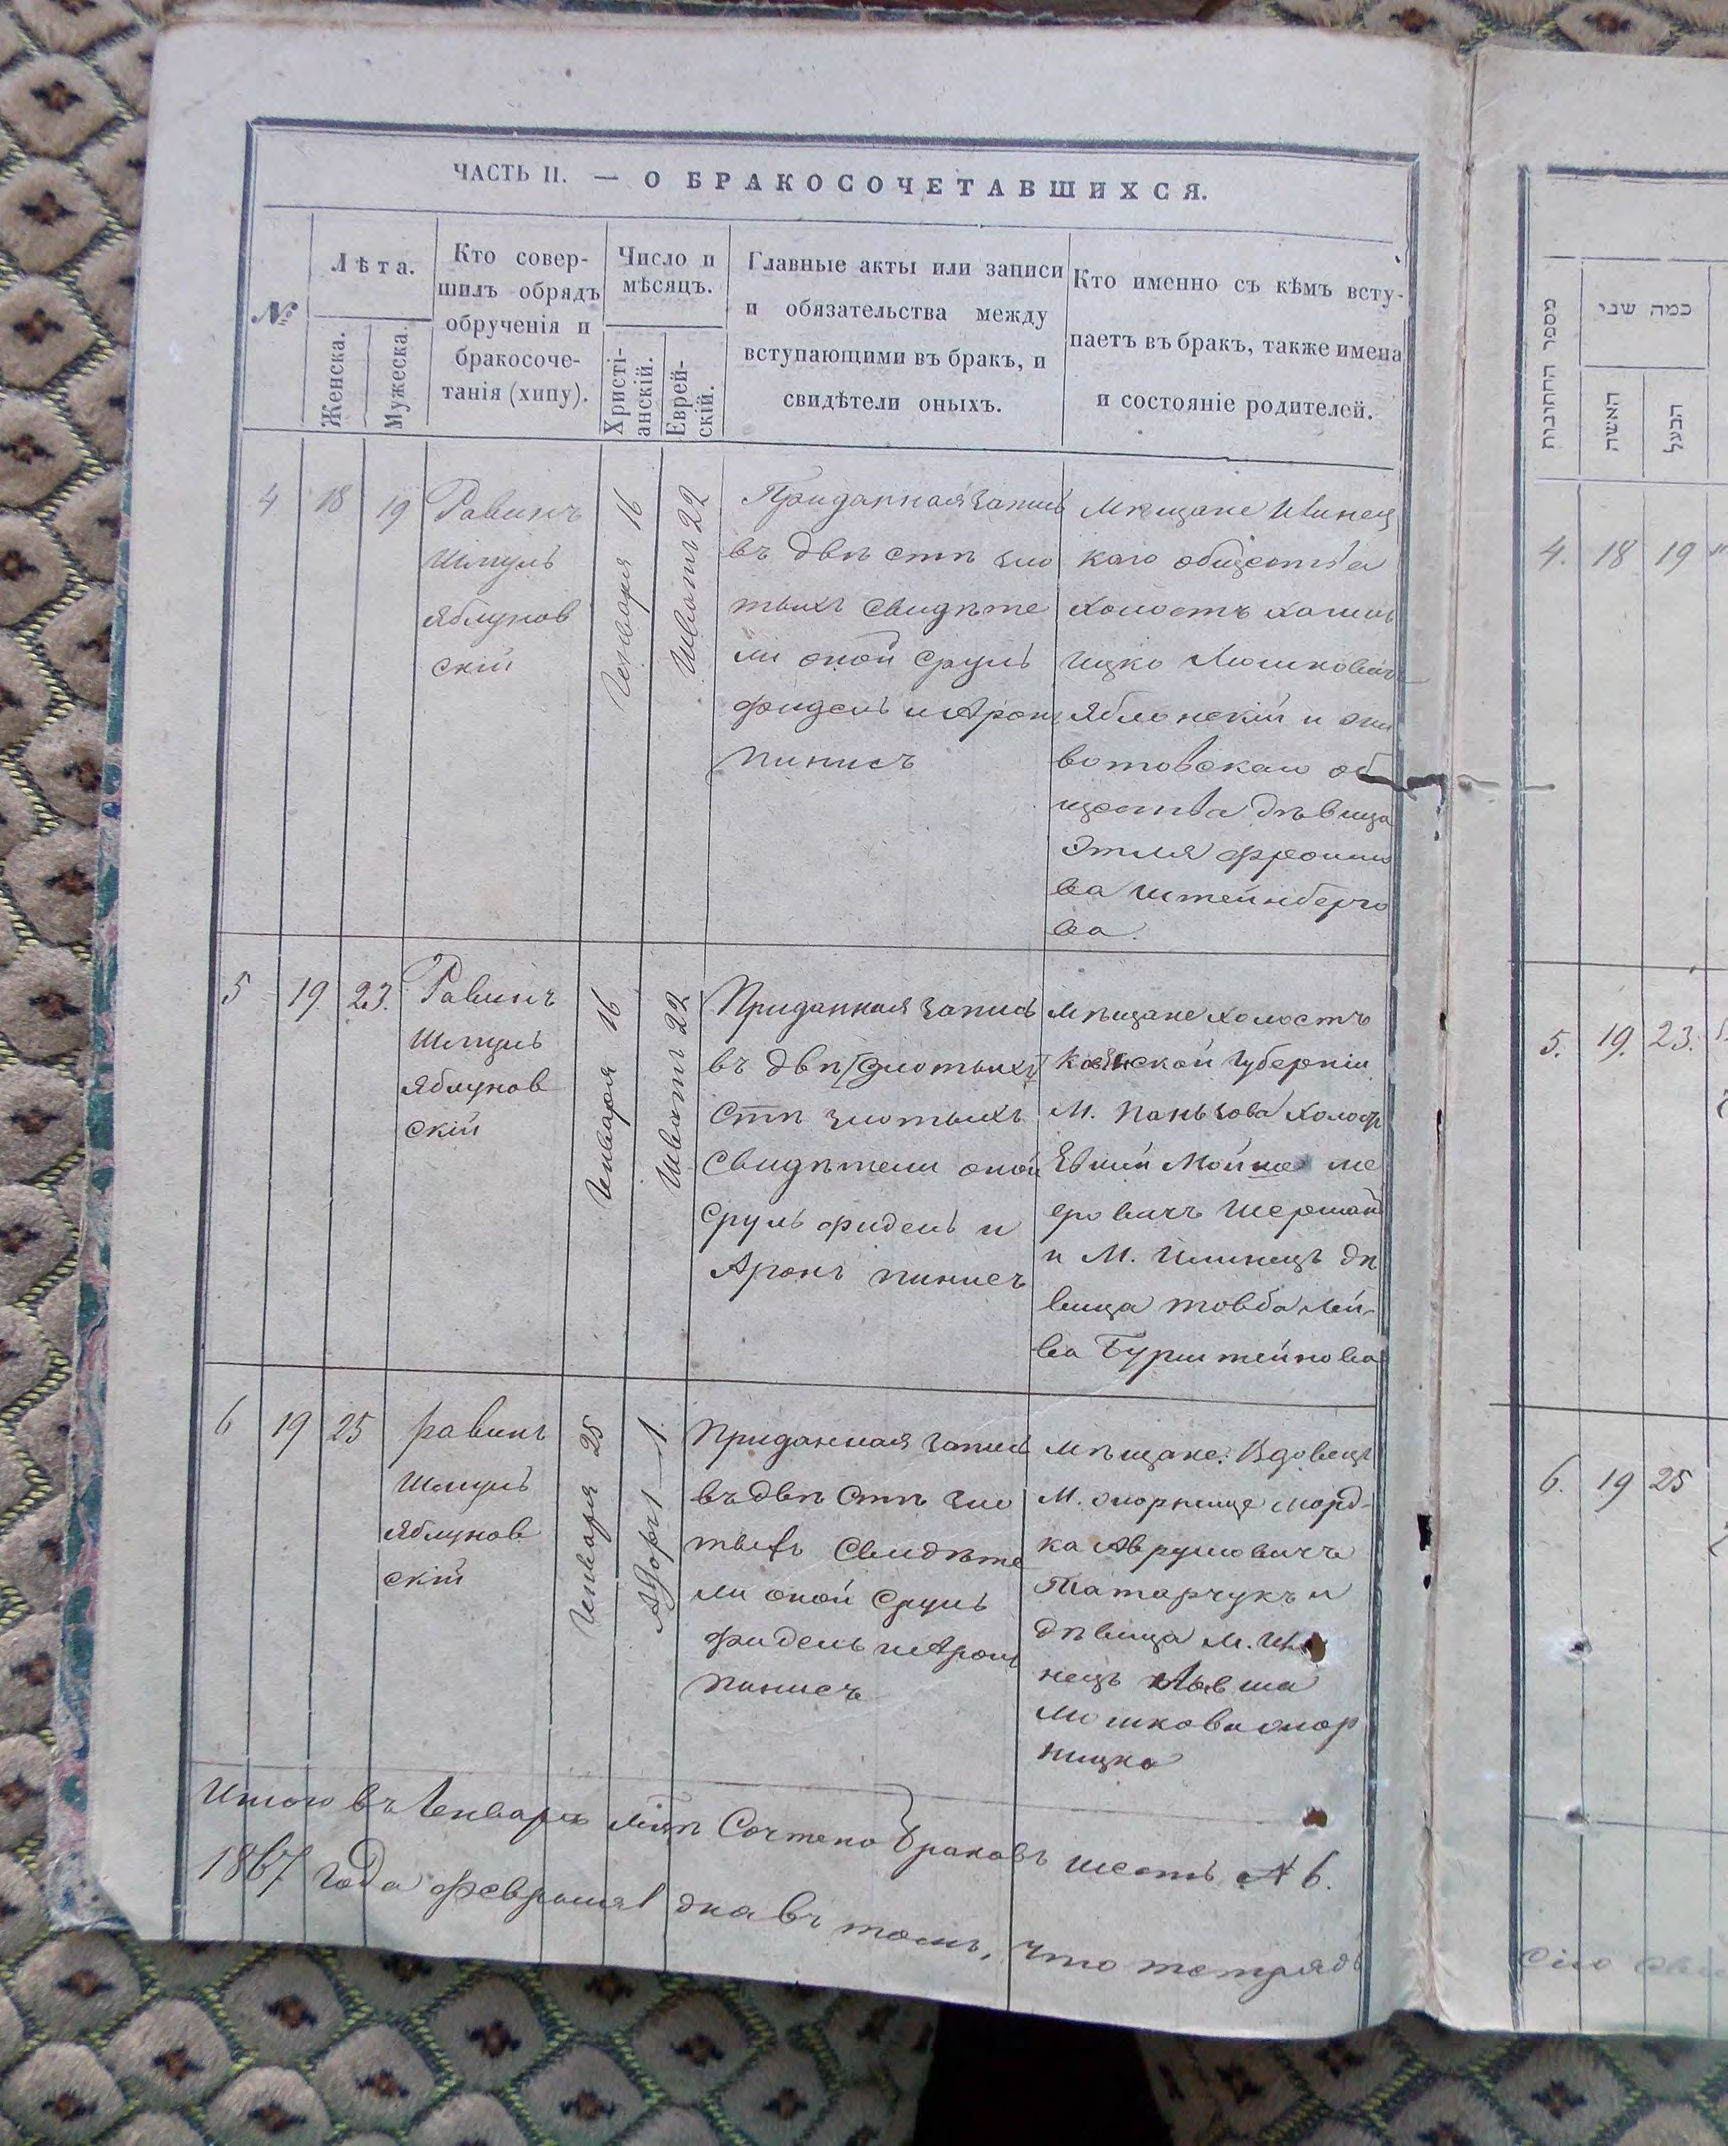 ЧАСТЬ II. — О БРАКОСОЧЕТАВШИХСЯ.
№
Лѣта.
Женска.
Мужеска.
Кто совер-
шилъ обрядъ
обрученія и
бракосоче-
танія (хипу).
Число и
мѣсяцъ.
Христі-
анскій.
Еврей-
скій.
Главные акты или записи
и обязательства между
вступающими въ бракъ, и
свидѣтели оныхъ.
Кто именно съ кѣмъ всту-
паетъ въ бракъ, также имена
и состояніе родителей.
4
18
19
Равинъ
Шмуль
Яблунов
скій
Генваря 16
Шватъ 22
Приданная запись
въ двѣ стѣ зло
тыхъ свидѣте
ли оной Сруль
Фидель и Аронъ
Пинисъ
Мѣщане Илинец
каго общества
холостъ
Ицко Мошковичъ
Яблонскій и
вотовскаго об
щества дѣвица
Этля
ва Штейнберго
ва.
5
19
23.
Равинъ
Шмуль
Яблунов
скій
Генваря 16
Шватъ 22
Приданная запись
въ двѣ злотыхъ
стѣ злотыхъ
свидѣтели оной
Сруль Фидель и
Аронъ Пинисъ
Мѣщане холостъ
Кіевской Губерніи
М.
Мойше Ме
еровичъ
и М. Илинецъ дѣ
вица Товба Лей-
ва Бурштейнова
6
19
25
равинъ
Шмуль
Яблунов
скій
Генваря 25
Адоръ 1-1.
Приданная запись
въ двѣ стѣ зло
тыхъ свидѣте
ли оной Сруль
Фидель и Аронъ
Пинисъ
Мѣщане: Вдовецъ
М. Морд-
ка Аврумовичъ
Татарчукъ и
дѣвица М. Или
нецъ
Мошкова
ницка
Итого въ Генварѣ м҃цѣ Сочтено Браковъ шесть № 6.
1867 года февраля 1 дня въ томъ, что тетрадь
מספר החתונות
כמה שני
האשה
הבעל
4.
18
19
5.
19.
23.
6.
19
25